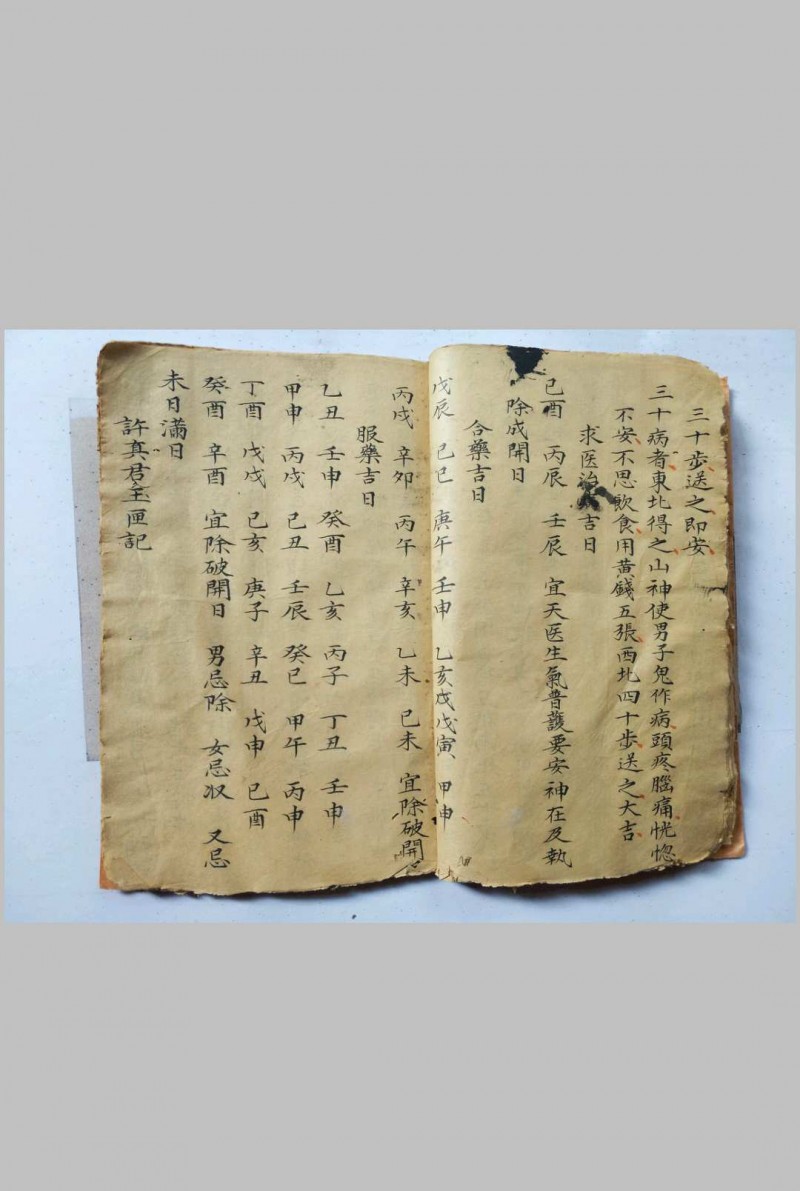 三十步送之即安
三十病者東北得之山神使男子鬼作病頭疼腦痛恍惚
不安不思飲食用黄錢五張西北四十步送之大吉
求医治吉日
己酉 丙辰 壬辰 宜天医生氣普護要安神在及執
除成開日
合藥吉日
戊辰 己巳 庚午 壬申 乙亥 戊寅 甲申
丙戌 辛卯 丙午 辛亥 乙未 己未 宜除破開
服藥吉日
乙丑 壬申 癸酉 乙亥 丙子 丁丑 壬申
甲申 丙戌 己丑 壬辰 癸巳 甲午 丙申
丁酉 戊戌 己亥 庚子 辛丑 戊申 己酉
癸酉 辛酉 宜除破開日 男忌除 女忌収 又忌
未日滿日
許真君玉匣記